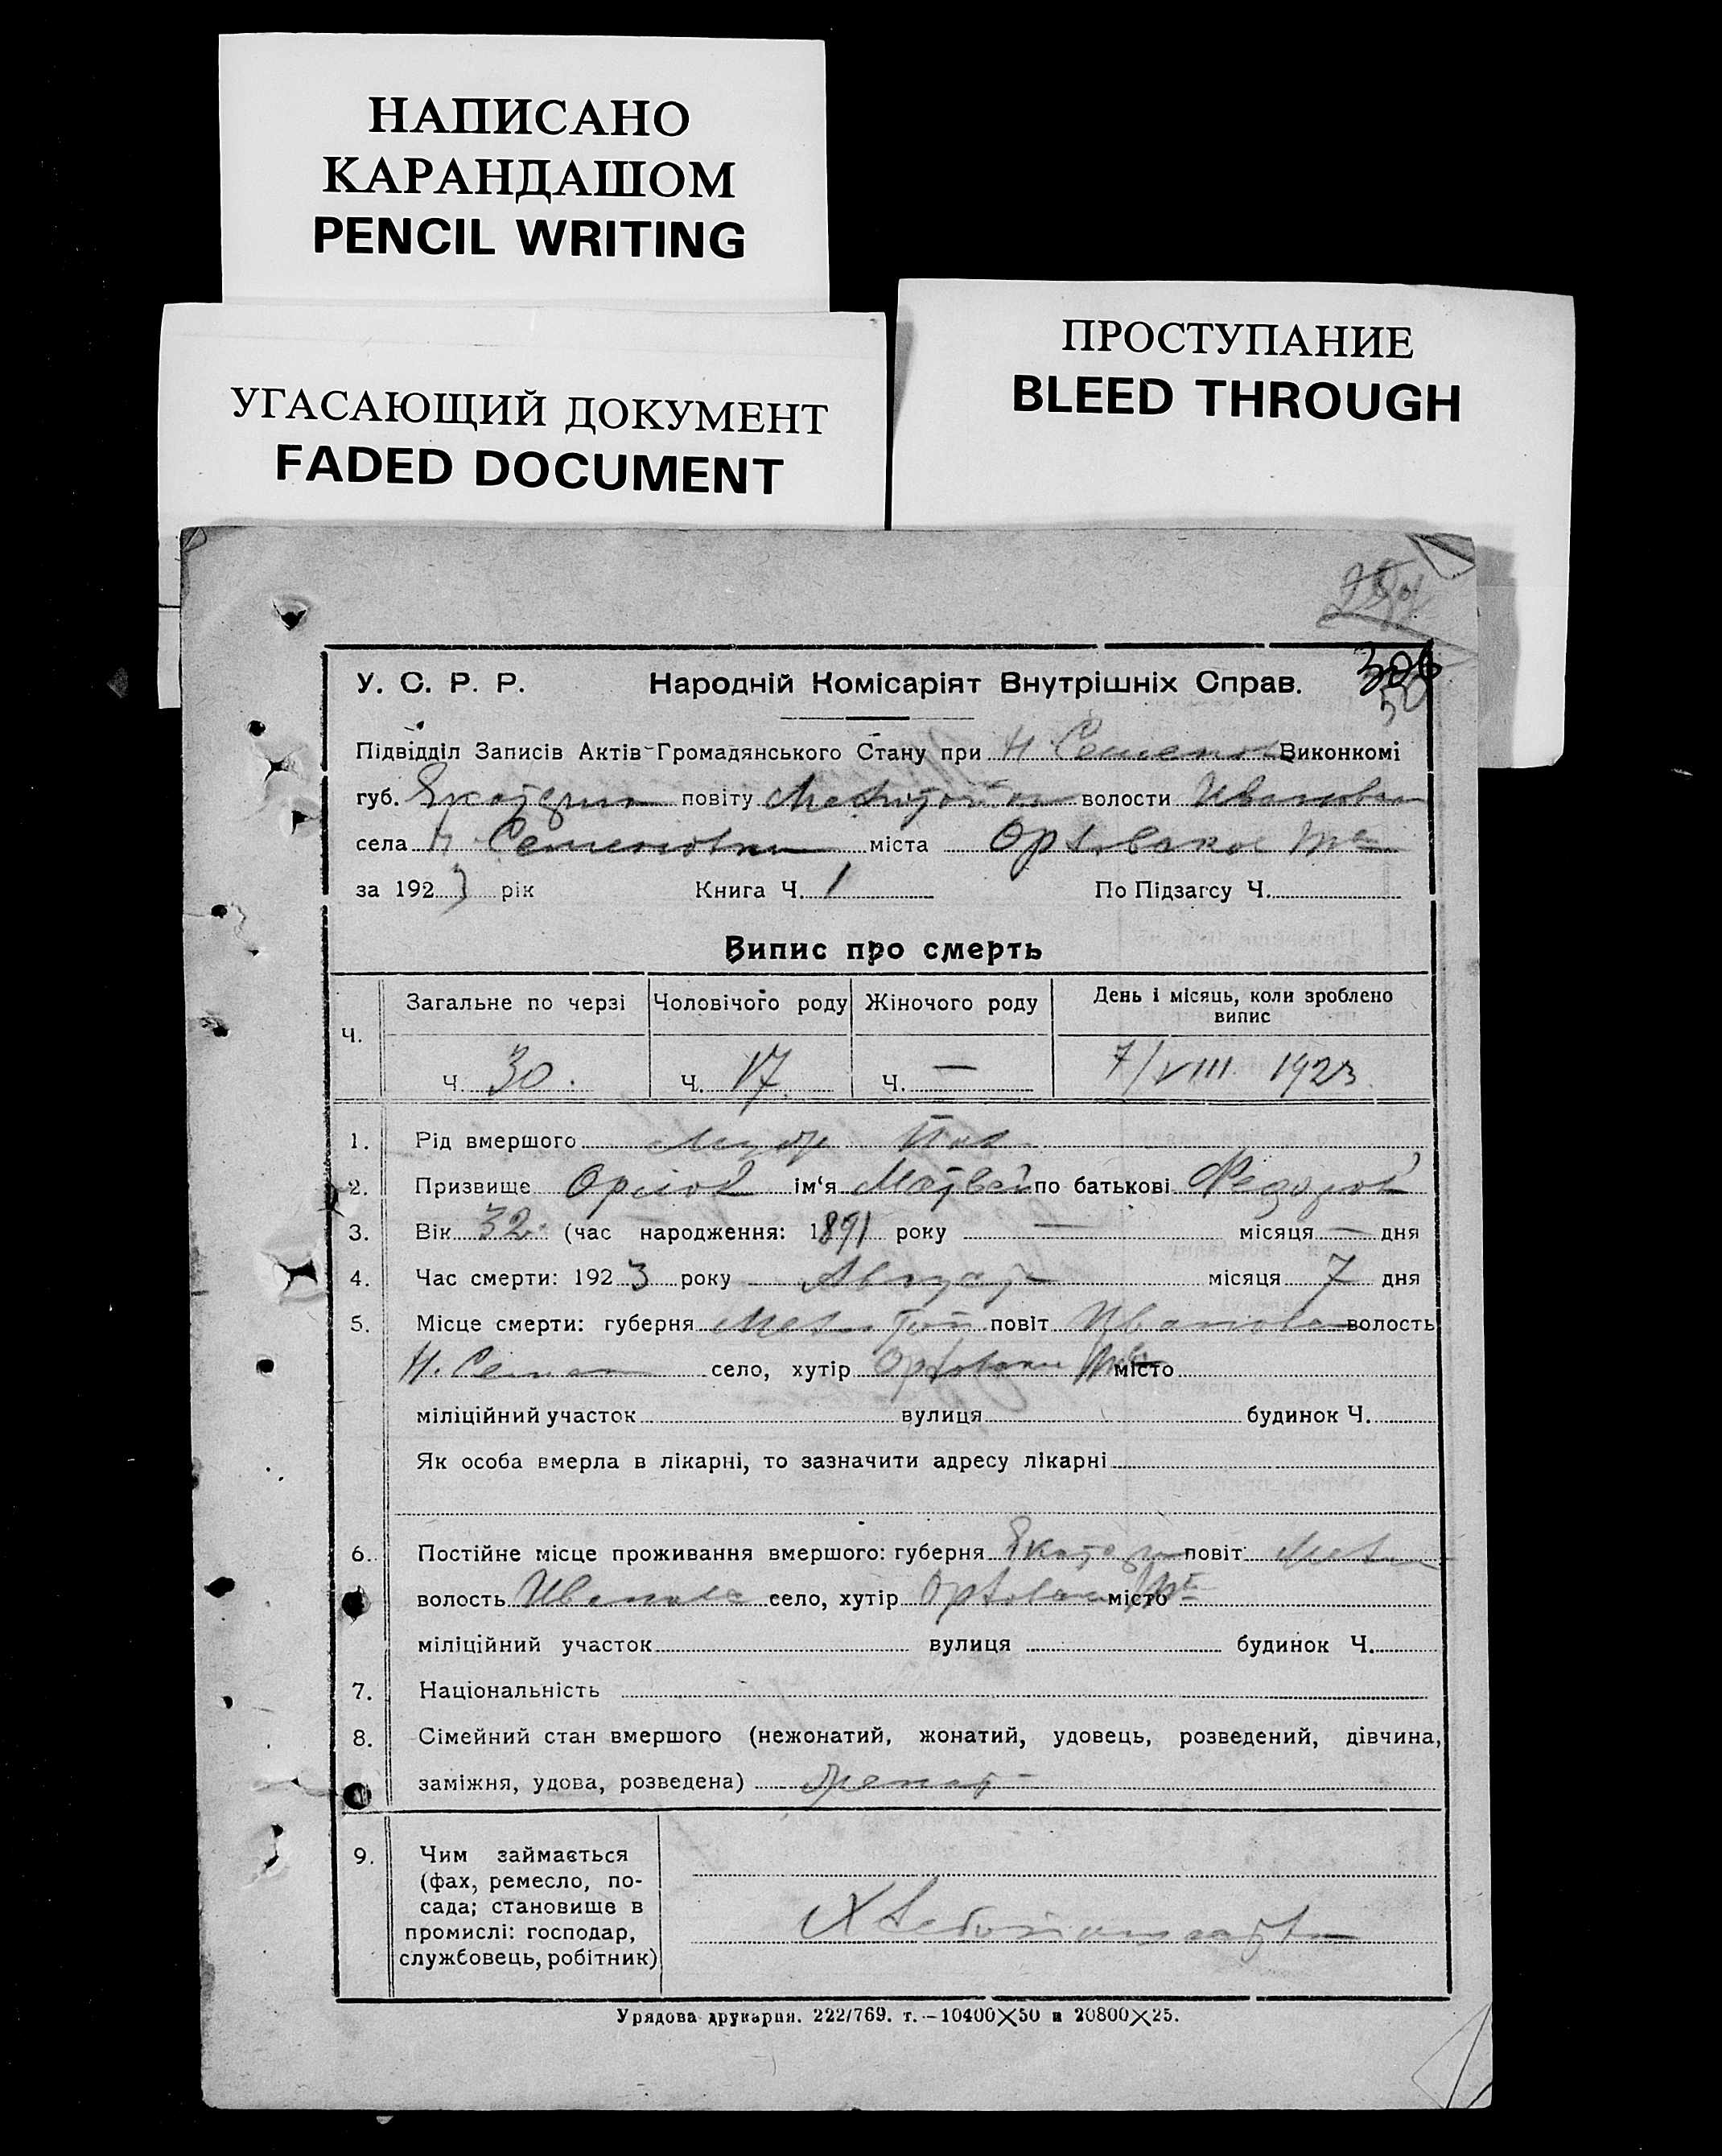 НАПИСАНО
КАРАНДАШОМ
PENCIL WRITING
УГАСАЮЩИЙ ДОКУМЕНТ
FADED DOCUMENT
ПРОСТУПАНИЕ
BLEED THROUGH
У. С. Р. Р. Народній Комісаріят Внутрішніх Справ.
Підвідділ Записів Актів Громадянського Стану при Н. Семенов Виконкомі
губ. Екатерин повіту волости Иванов
села Н. Семеновки міста
за 1923 рік Книга Ч. 1 По Підзагсу Ч.
Випис про смерть
Ч. Загальне по черзі Чоловічого роду Жіночого роду День і місяць, коли зроблено випис
Ч. 30. Ч. 17 Ч. — 7/VIII 1923
1. Рід вмершого
2. Призвище Орлов ім'я Матвей по батькові Федоров
3. Вік 32 (час народження: 1891 року — місяця — дня
4. Час смерти: 1923 року Август місяця 7 дня
5. Місце смерти: губерня повіт Иванов волость
Н. Семен село, хутір місто
міліційний участок вулиця будинок Ч.
Як особа вмерла в лікарні, то зазначити адресу лікарні
6. Постійне місце проживання вмершого: губерня Екатерин повіт Мел
волость Иванов село, хутір місто
міліційний участок вулиця будинок Ч.
7. Національність
8. Сімейний стан вмершого (нежонатий, жонатий, удовець, розведений, дівчина,
заміжня, удова, розведена) женат
9. Чим займається
(фах, ремесло, по-
сада; становище в
промислі: господар,
службовець, робітник)
Хлебопашество
Урядова друкарня. 222/769. т.—10400×50 и 20800×25.